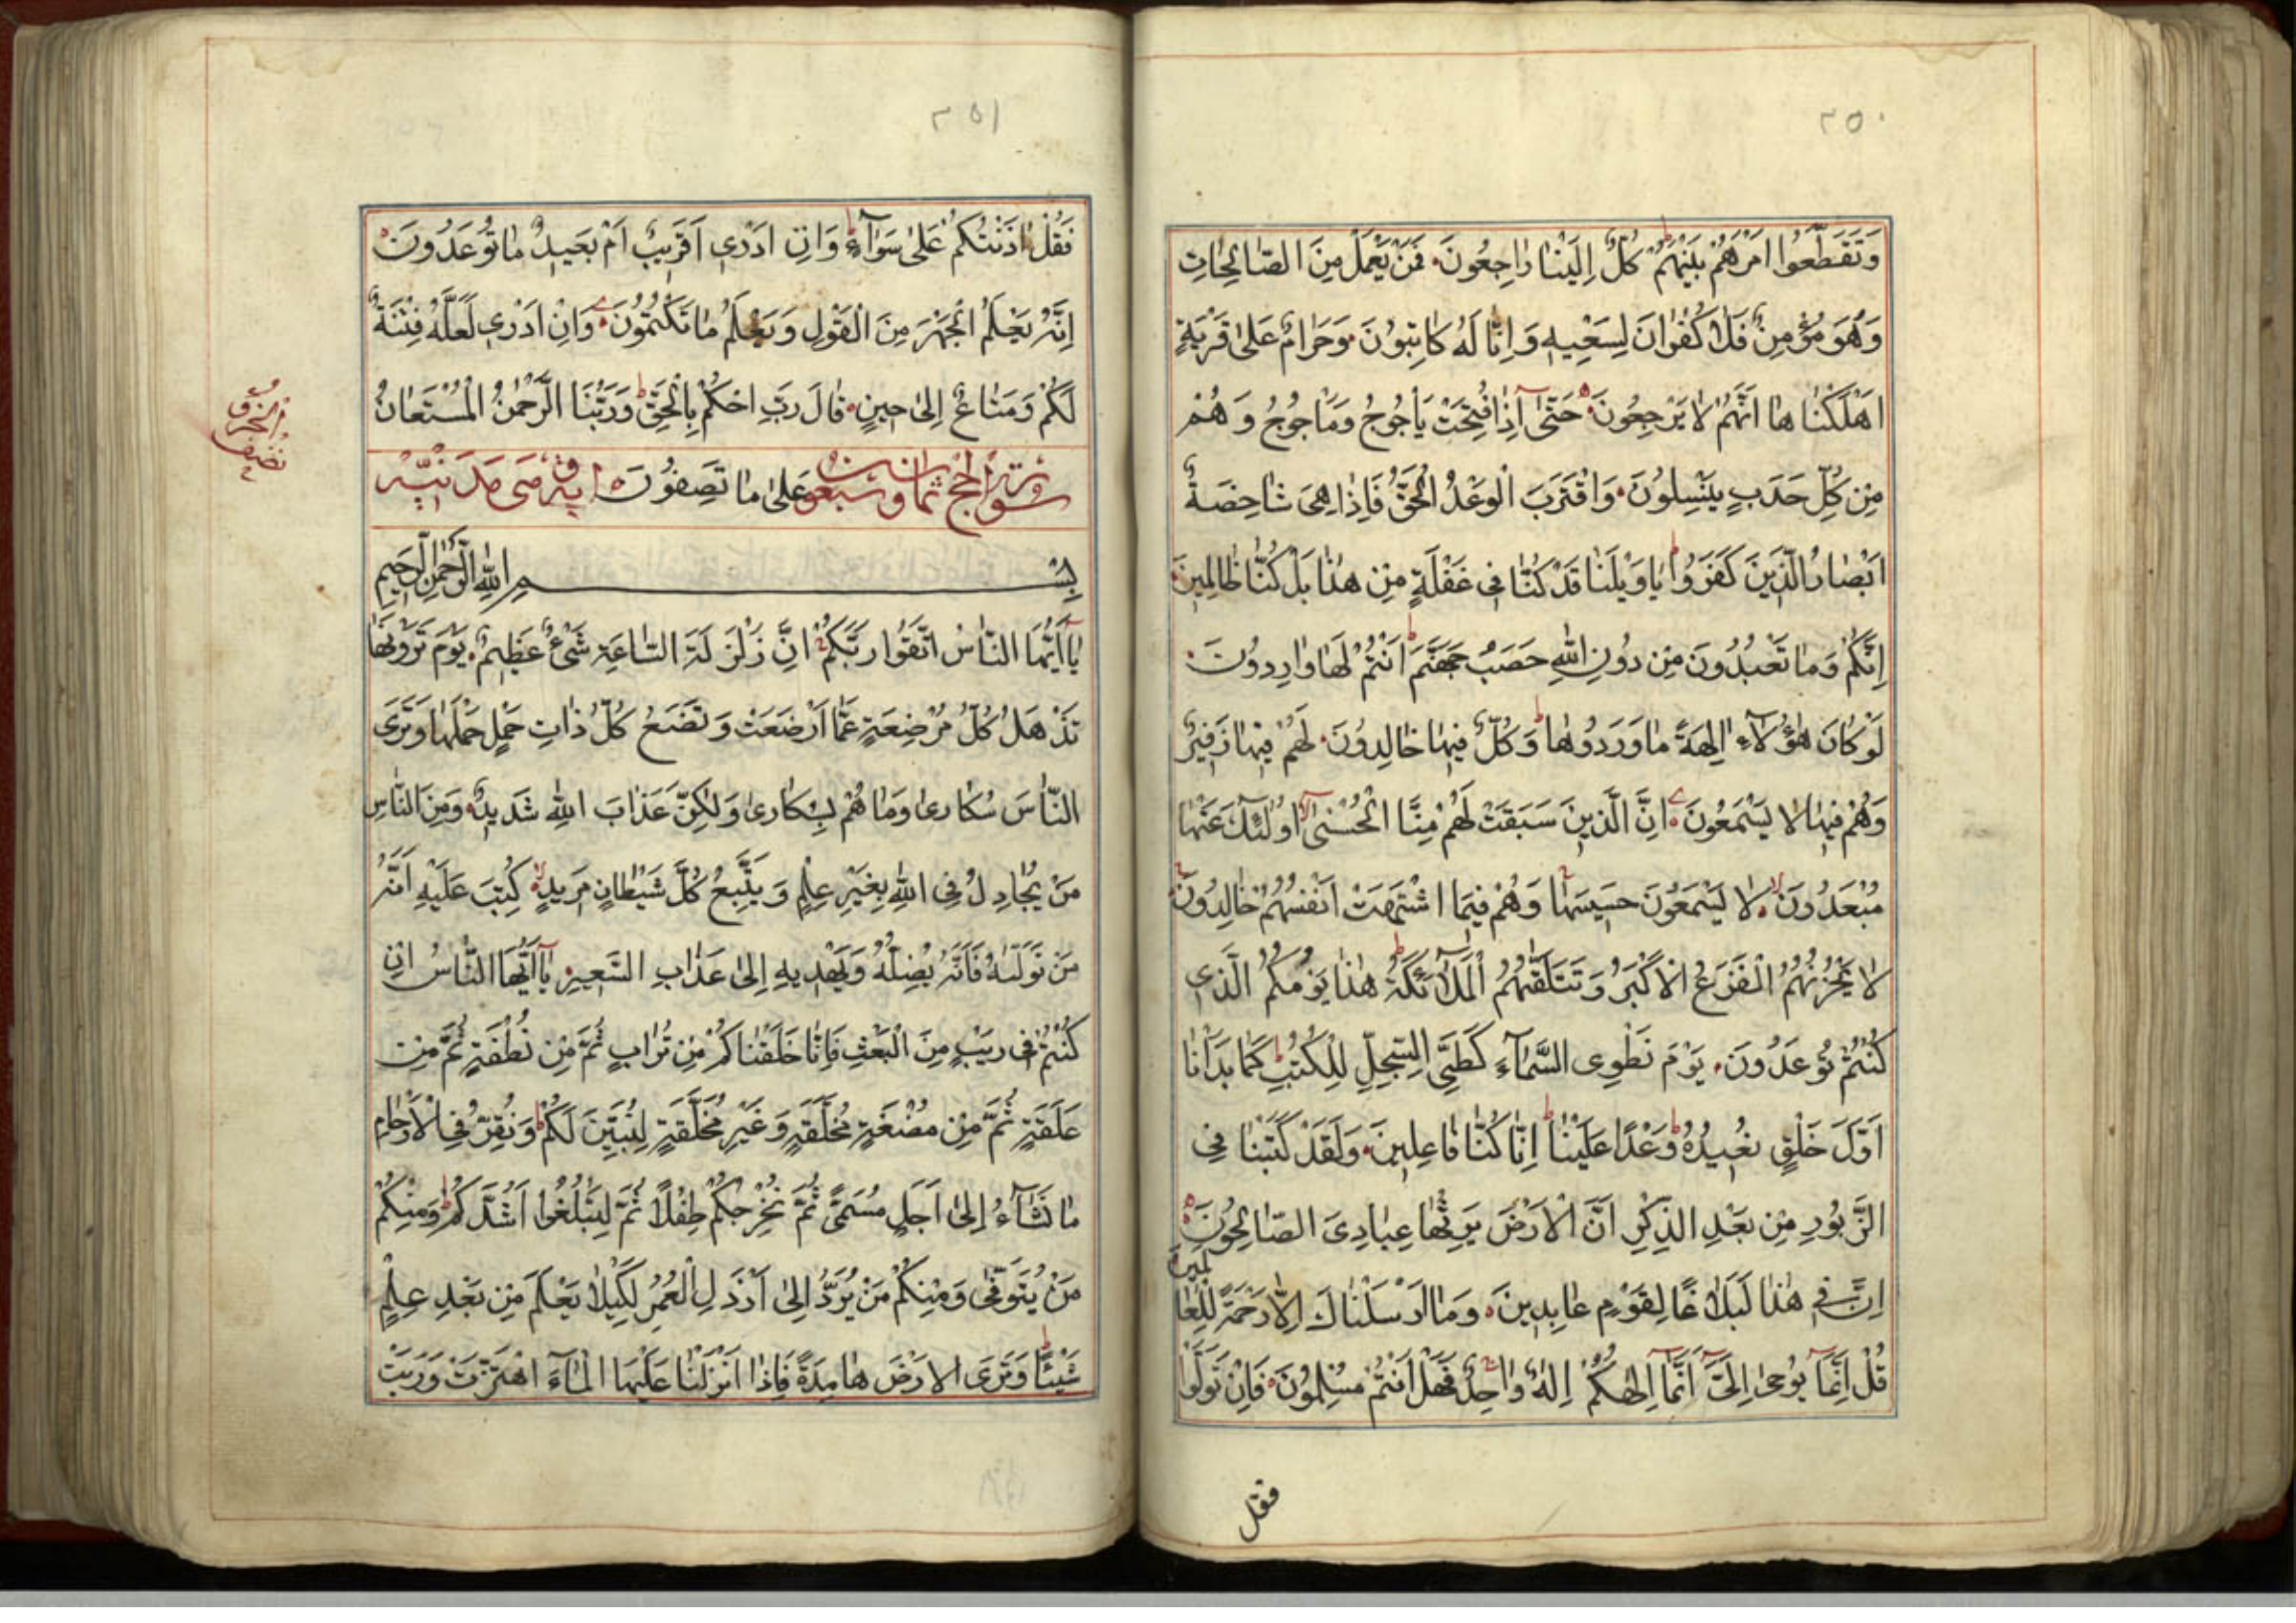 ٢٥٠
وَتَقَطَّعُوا اَمْرَهُمْ بَيْنَهُمْ كُلٌّ اِلَيْنَا رَاجِعُونَ فَمَنْ يَعْمَلْ مِنَ الصَّالِحَاتِ
وَهُوَ مُؤْمِنٌ فَلَا كُفْرَانَ لِسَعْيِهِ وَاِنَّا لَهُ كَاتِبُونَ وَحَرَامٌ عَلَى قَرْيَةٍ
اَهْلَكْنَاهَا اَنَّهُمْ لَا يَرْجِعُونَ حَتَّى اِذَا فُتِحَتْ يَأْجُوجُ وَمَأْجُوجُ وَهُمْ
مِنْ كُلِّ حَدَبٍ يَنْسِلُونَ وَاقْتَرَبَ الْوَعْدُ الْحَقُّ فَاِذَا هِيَ شَاخِصَةٌ
اَبْصَارُ الَّذِينَ كَفَرُوا يَا وَيْلَنَا قَدْ كُنَّا فِي غَفْلَةٍ مِنْ هَذَا بَلْ كُنَّا ظَالِمِينَ
اِنَّكُمْ وَمَا تَعْبُدُونَ مِنْ دُونِ اللهِ حَصَبُ جَهَنَّمَ اَنْتُمْ لَهَا وَارِدُونَ
لَوْ كَانَ هَؤُلَاءِ اٰلِهَةً مَا وَرَدُوهَا وَكُلٌّ فِيهَا خَالِدُونَ لَهُمْ فِيهَا زَفِيرٌ
وَهُمْ فِيهَا لَا يَسْمَعُونَ اِنَّ الَّذِينَ سَبَقَتْ لَهُمْ مِنَّا الْحُسْنَى اُولَئِكَ عَنْهَا
مُبْعَدُونَ لَا يَسْمَعُونَ حَسِيسَهَا وَهُمْ فِيمَا اشْتَهَتْ اَنْفُسُهُمْ خَالِدُونَ
لَا يَحْزُنُهُمُ الْفَزَعُ الْاَكْبَرُ وَتَتَلَقّٰهُمُ الْمَلَائِكَةُ هَذَا يَوْمُكُمُ الَّذِي
كُنْتُمْ تُوعَدُونَ يَوْمَ نَطْوِي السَّمَاءَ كَطَيِّ السِّجِلِّ لِلْكُتُبِ كَمَا بَدَأْنَا
اَوَّلَ خَلْقٍ نُعِيدُهُ وَعْدًا عَلَيْنَا اِنَّا كُنَّا فَاعِلِينَ وَلَقَدْ كَتَبْنَا فِي
الزَّبُورِ مِنْ بَعْدِ الذِّكْرِ اَنَّ الْاَرْضَ يَرِثُهَا عِبَادِيَ الصَّالِحُونَ
اِنَّ فِي هَذَا لَبَلَاغًا لِقَوْمٍ عَابِدِينَ وَمَا اَرْسَلْنَاكَ اِلَّا رَحْمَةً لِلْعَالَمِينَ
قُلْ اِنَّمَا يُوحَى اِلَيَّ اَنَّمَا اِلٰهُكُمْ اِلٰهٌ وَاحِدٌ فَهَلْ اَنْتُمْ مُسْلِمُونَ فَاِنْ تَوَلَّوْا
فقل
٢٥١
فَقُلْ اٰذَنْتُكُمْ عَلَى سَوَاءٍ وَاِنْ اَدْرِي اَقَرِيبٌ اَمْ بَعِيدٌ مَا تُوعَدُونَ
اِنَّهُ يَعْلَمُ الْجَهْرَ مِنَ الْقَوْلِ وَيَعْلَمُ مَا تَكْتُمُونَ وَاِنْ اَدْرِي لَعَلَّهُ فِتْنَةٌ
لَكُمْ وَمَتَاعٌ اِلَى حِينٍ قَالَ رَبِّ احْكُمْ بِالْحَقِّ وَرَبُّنَا الرَّحْمٰنُ الْمُسْتَعَانُ
سورة الحج ثمان وسبعون عَلَى مَا تَصِفُونَ اية وهي مدنية
بِسْمِ اللهِ الرَّحْمٰنِ الرَّحِيمِ
يَا اَيُّهَا النَّاسُ اتَّقُوا رَبَّكُمْ اِنَّ زَلْزَلَةَ السَّاعَةِ شَيْءٌ عَظِيمٌ يَوْمَ تَرَوْنَهَا
تَذْهَلُ كُلُّ مُرْضِعَةٍ عَمَّا اَرْضَعَتْ وَتَضَعُ كُلُّ ذَاتِ حَمْلٍ حَمْلَهَا وَتَرَى
النَّاسَ سُكَارَى وَمَا هُمْ بِسُكَارَى وَلَكِنَّ عَذَابَ اللهِ شَدِيدٌ وَمِنَ النَّاسِ
مَنْ يُجَادِلُ فِي اللهِ بِغَيْرِ عِلْمٍ وَيَتَّبِعُ كُلَّ شَيْطَانٍ مَرِيدٍ كُتِبَ عَلَيْهِ اَنَّهُ
مَنْ تَوَلَّاهُ فَاَنَّهُ يُضِلُّهُ وَيَهْدِيهِ اِلَى عَذَابِ السَّعِيرِ يَا اَيُّهَا النَّاسُ اِنْ
كُنْتُمْ فِي رَيْبٍ مِنَ الْبَعْثِ فَاِنَّا خَلَقْنَاكُمْ مِنْ تُرَابٍ ثُمَّ مِنْ نُطْفَةٍ ثُمَّ مِنْ
عَلَقَةٍ ثُمَّ مِنْ مُضْغَةٍ مُخَلَّقَةٍ وَغَيْرِ مُخَلَّقَةٍ لِنُبَيِّنَ لَكُمْ وَنُقِرُّ فِي الْاَرْحَامِ
مَا نَشَاءُ اِلَى اَجَلٍ مُسَمًّى ثُمَّ نُخْرِجُكُمْ طِفْلًا ثُمَّ لِتَبْلُغُوا اَشُدَّكُمْ وَمِنْكُمْ
مَنْ يُتَوَفَّى وَمِنْكُمْ مَنْ يُرَدُّ اِلَى اَرْذَلِ الْعُمُرِ لِكَيْلَا يَعْلَمَ مِنْ بَعْدِ عِلْمٍ
شَيْئًا وَتَرَى الْاَرْضَ هَامِدَةً فَاِذَا اَنْزَلْنَا عَلَيْهَا الْمَاءَ اهْتَزَّتْ وَرَبَتْ